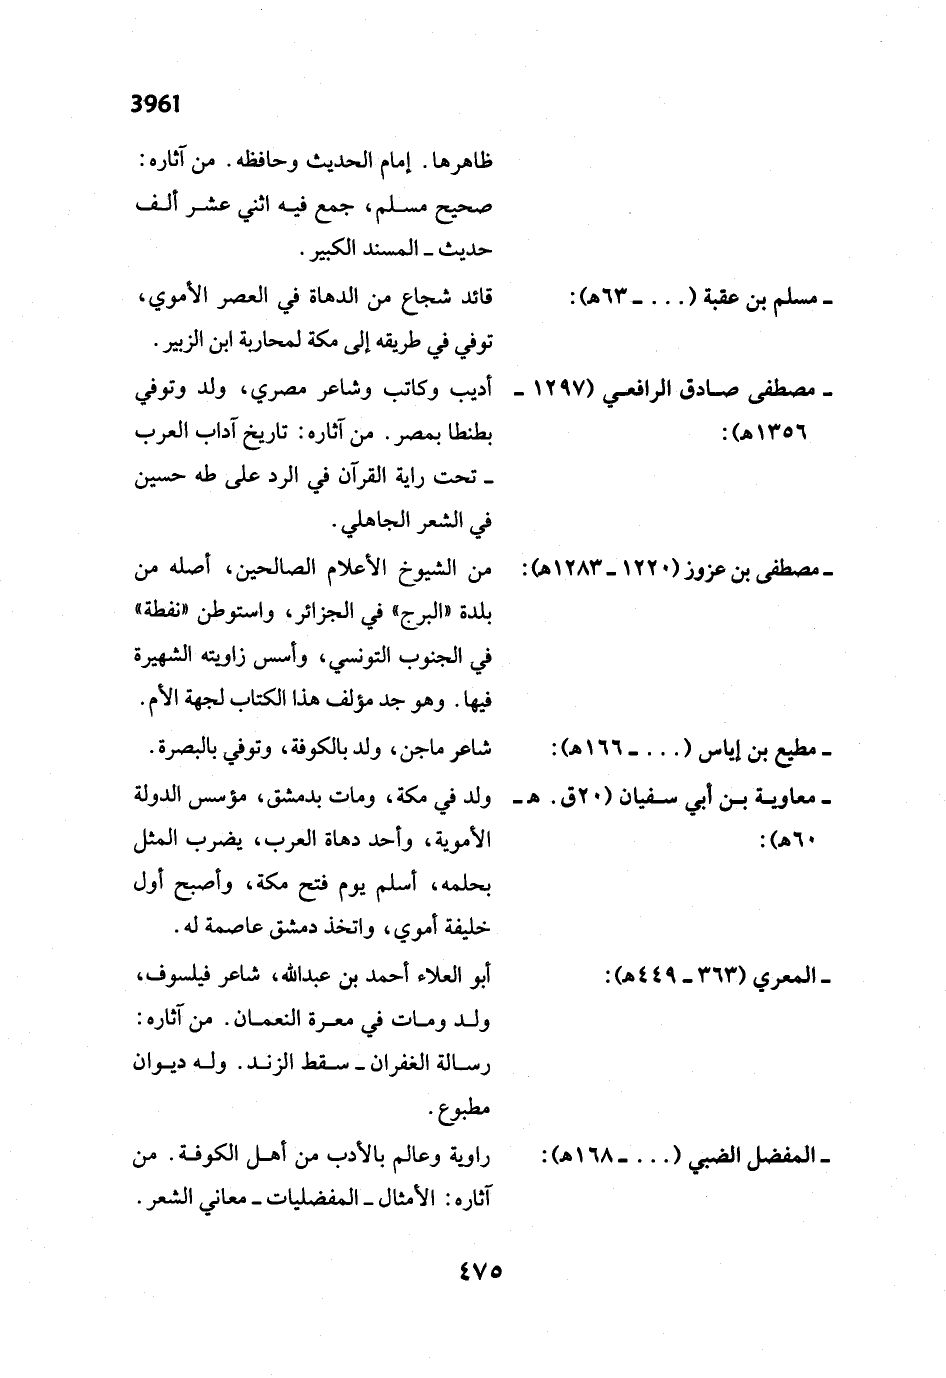 3961
ظاهرها. إمام الحديث وحافظه. من آثاره:
صحيح مسلم، جمع فيه اثني عشر ألف
حديث ـ المسند الكبير.
ـ مسلم بن عقبة (... ـ ٦٣هـ): قائد شجاع من الدهاة في العصر الأموي،
توفي في طريقه إلى مكة لمحاربة ابن الزبير.
ـ مصطفى صادق الرافعي (١٢٩٧ ـ أديب وكاتب وشاعر مصري، ولد وتوفي
١٣٥٦هـ): بطنطا بمصر. من آثاره: تاريخ آداب العرب
ـ تحت راية القرآن في الرد على طه حسين
في الشعر الجاهلي.
ـ مصطفى بن عزوز (١٢٢٠ ـ ١٢٨٣هـ): من الشيوخ الأعلام الصالحين، أصله من
بلدة «البرج» في الجزائر، واستوطن «نفطة»
في الجنوب التونسي، وأسس زاويته الشهيرة
فيها. وهو جد مؤلف هذا الكتاب لجهة الأم.
ـ مطيع بن إياس (... ـ ١٦٦هـ): شاعر ماجن، ولد بالكوفة، وتوفي بالبصرة.
ـ معاوية بن أبي سفيان (٢٠ق. هـ ـ ولد في مكة، ومات بدمشق، مؤسس الدولة
٦٠هـ): الأموية، وأحد دهاة العرب، يضرب المثل
بحلمه، أسلم يوم فتح مكة، وأصبح أول
خليفة أموي، واتخذ دمشق عاصمة له.
ـ المعري (٣٦٣ ـ ٤٤٩هـ): أبو العلاء أحمد بن عبدالله، شاعر فيلسوف،
ولد ومات في معرة النعمان. من آثاره:
رسالة الغفران ـ سقط الزند. وله ديوان
مطبوع.
ـ المفضل الضبي (... ـ ١٦٨هـ): راوية وعالم بالأدب من أهل الكوفة. من
آثاره: الأمثال ـ المفضليات ـ معاني الشعر.
٤٧٥